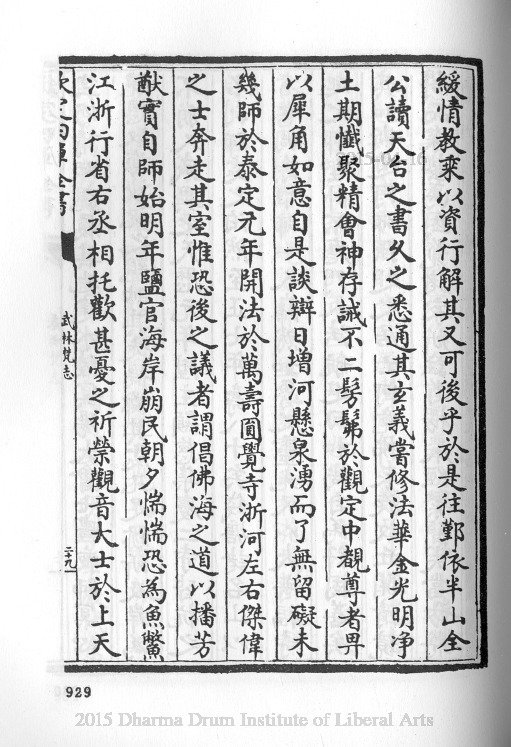 緩情教乘以資行解其又可後乎於是往鄞依半山全
公讀天台之書久之悉通其玄義嘗修法華金光明净
土期懺聚精會神存誠不二髣髴於觀定中覩尊者畀
以犀角如意自是談辯日增河懸泉湧而了無留礙未
幾師於泰定元年開法於萬壽圓覺寺浙河左右傑偉
之士奔走其室惟恐後之議者謂倡佛海之道以播芳
猷實自師始明年鹽官海岸崩民朝夕惴惴恐為魚鱉
江浙行省右丞相托歡甚憂之祈禜觀音大士於上天
武林梵志
二十九
929
2015 Dharma Drum Institute of Liberal Arts